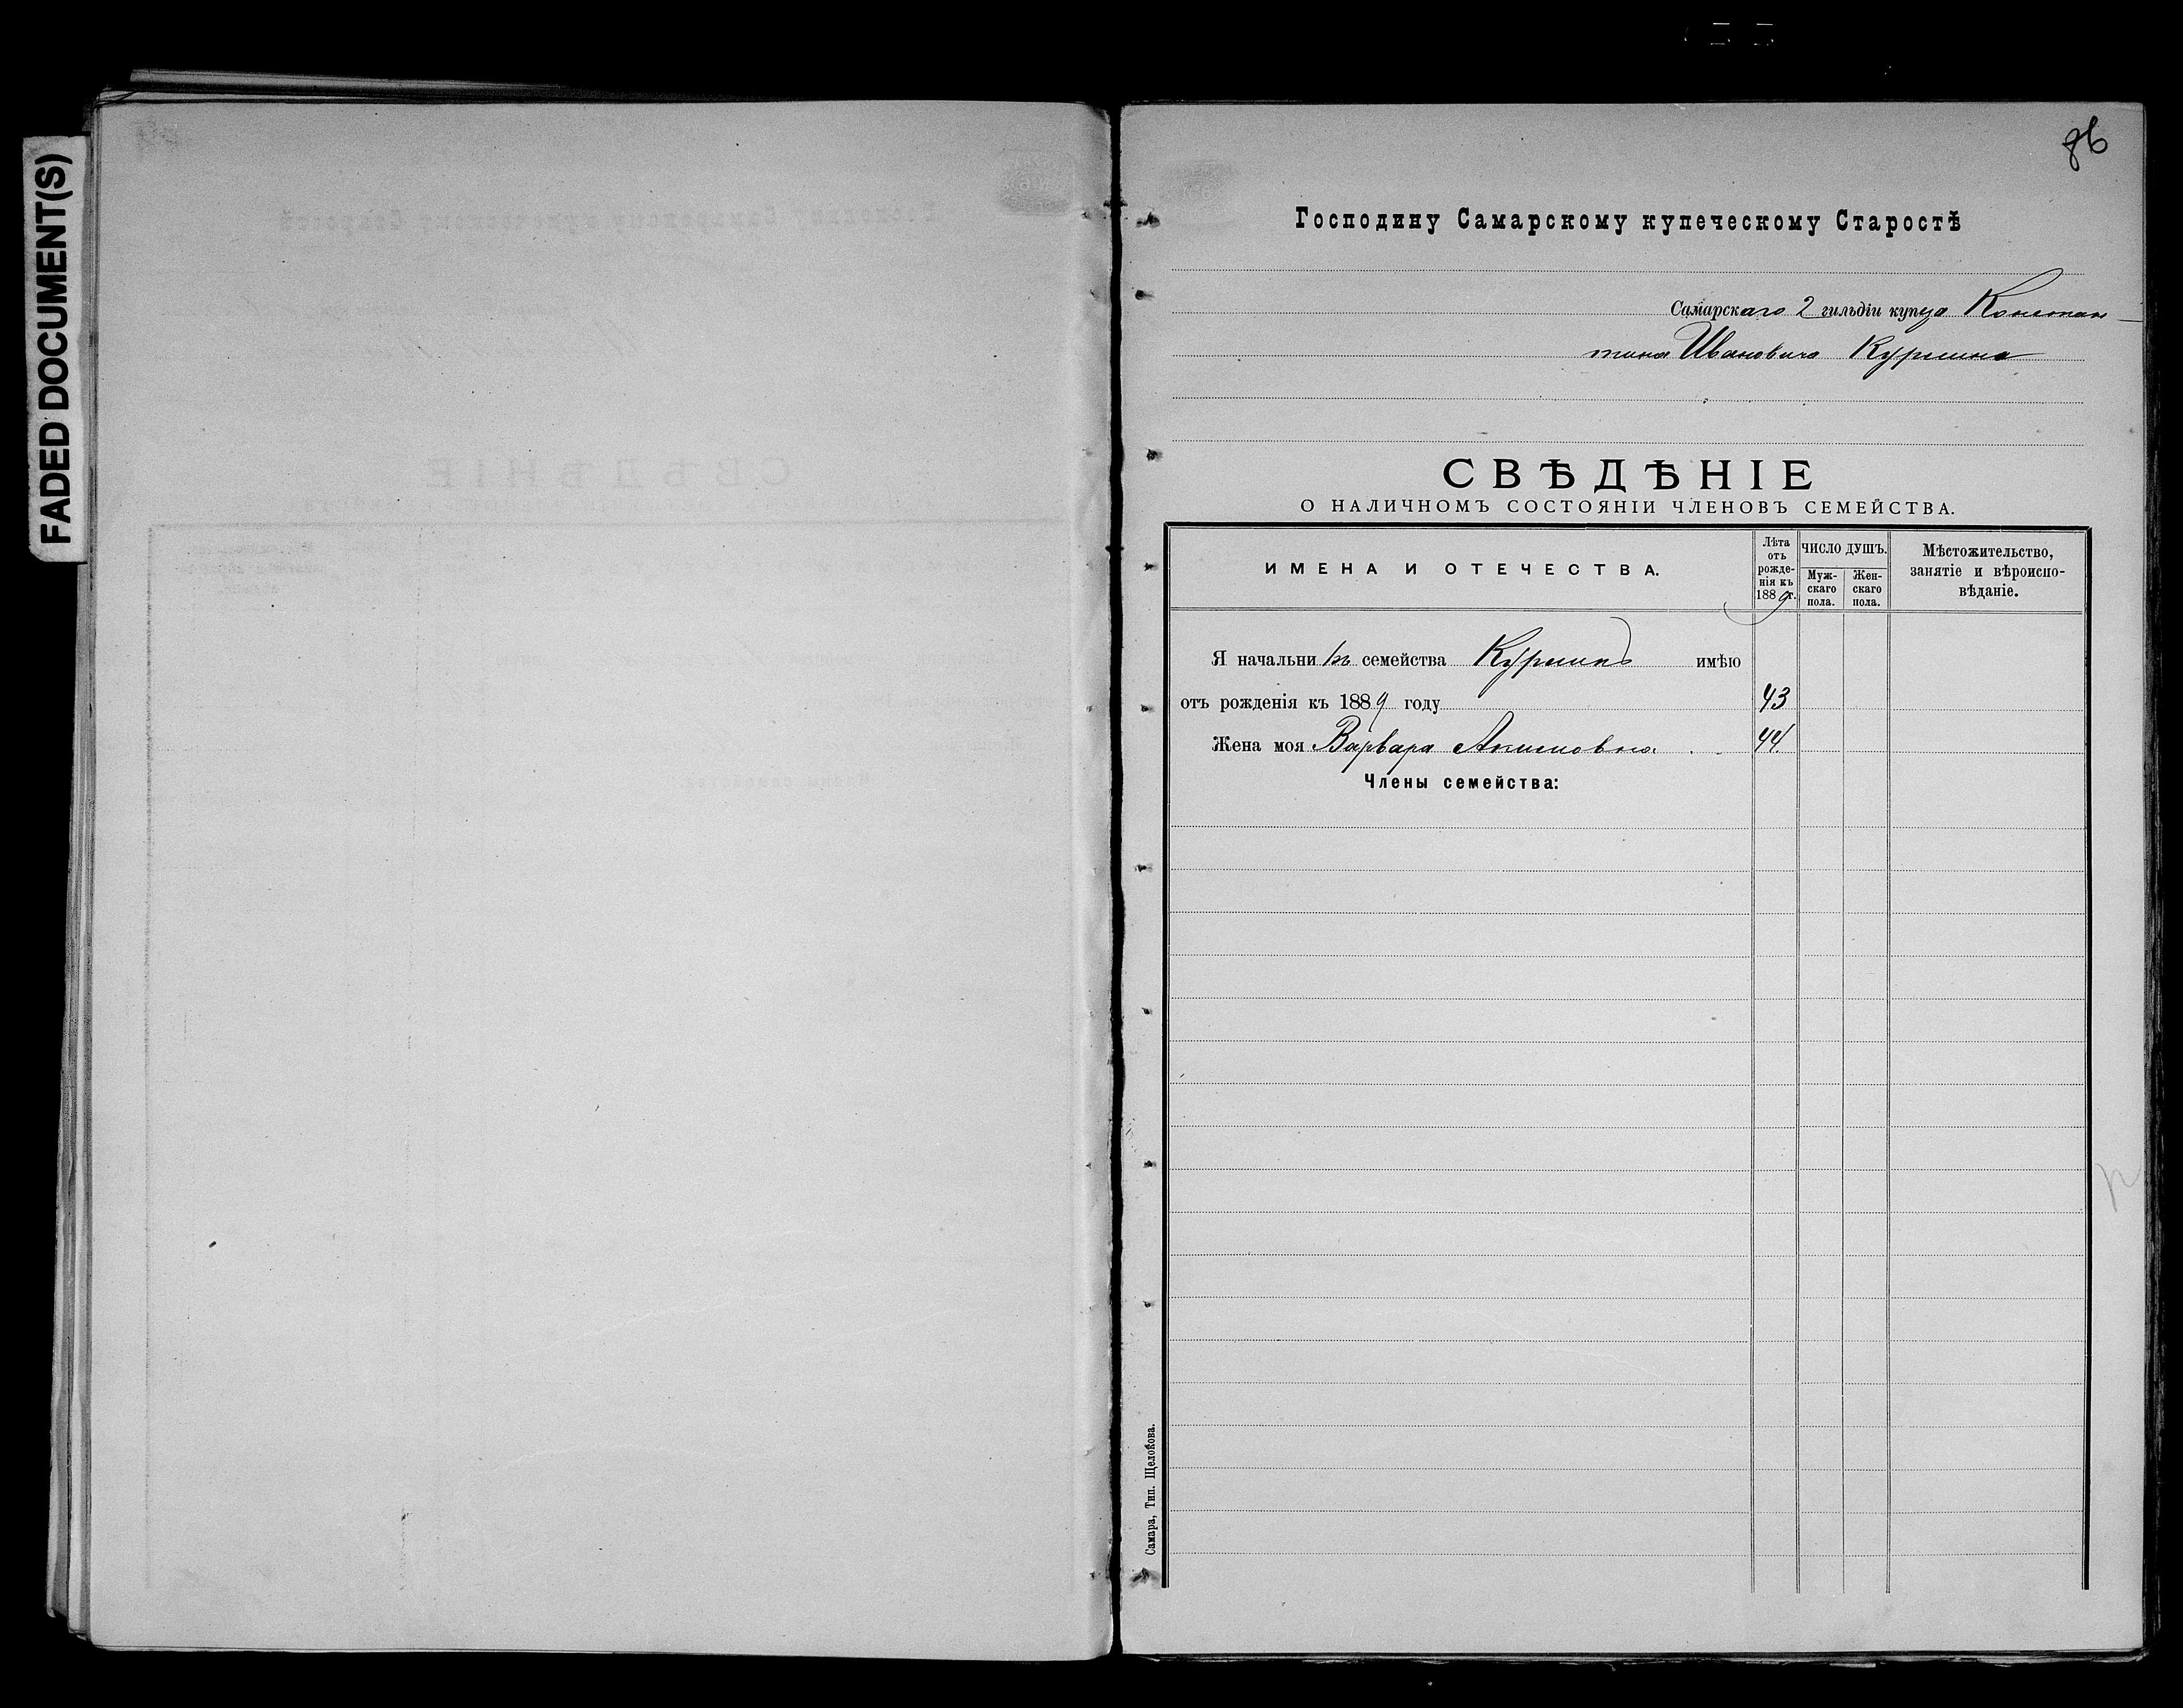 FADED DOCUMENT(S)
86
Господину Самарскому купеческому Старостѣ
Самарскаго 2 гильдіи купца Констан-
тина Ивановича Куршина
СВѢДѢНІЕ
О НАЛИЧНОМЪ СОСТОЯНІИ ЧЛЕНОВЪ СЕМЕЙСТВА.
ИМЕНА И ОТЕЧЕСТВА.
Лѣта
отъ
рожде-
нія къ
1889 г.
ЧИСЛО ДУШЪ.
Муж-
скаго
пола.
Жен-
скаго
пола.
Мѣстожительство,
занятіе и вѣроиспо-
вѣданіе.
Я начальникъ семейства Куршинъ имѣю
отъ рожденія къ 1889 году 43
Жена моя Варвара Акимовна 44
Члены семейства:
Самара, Тип. Щелокова.